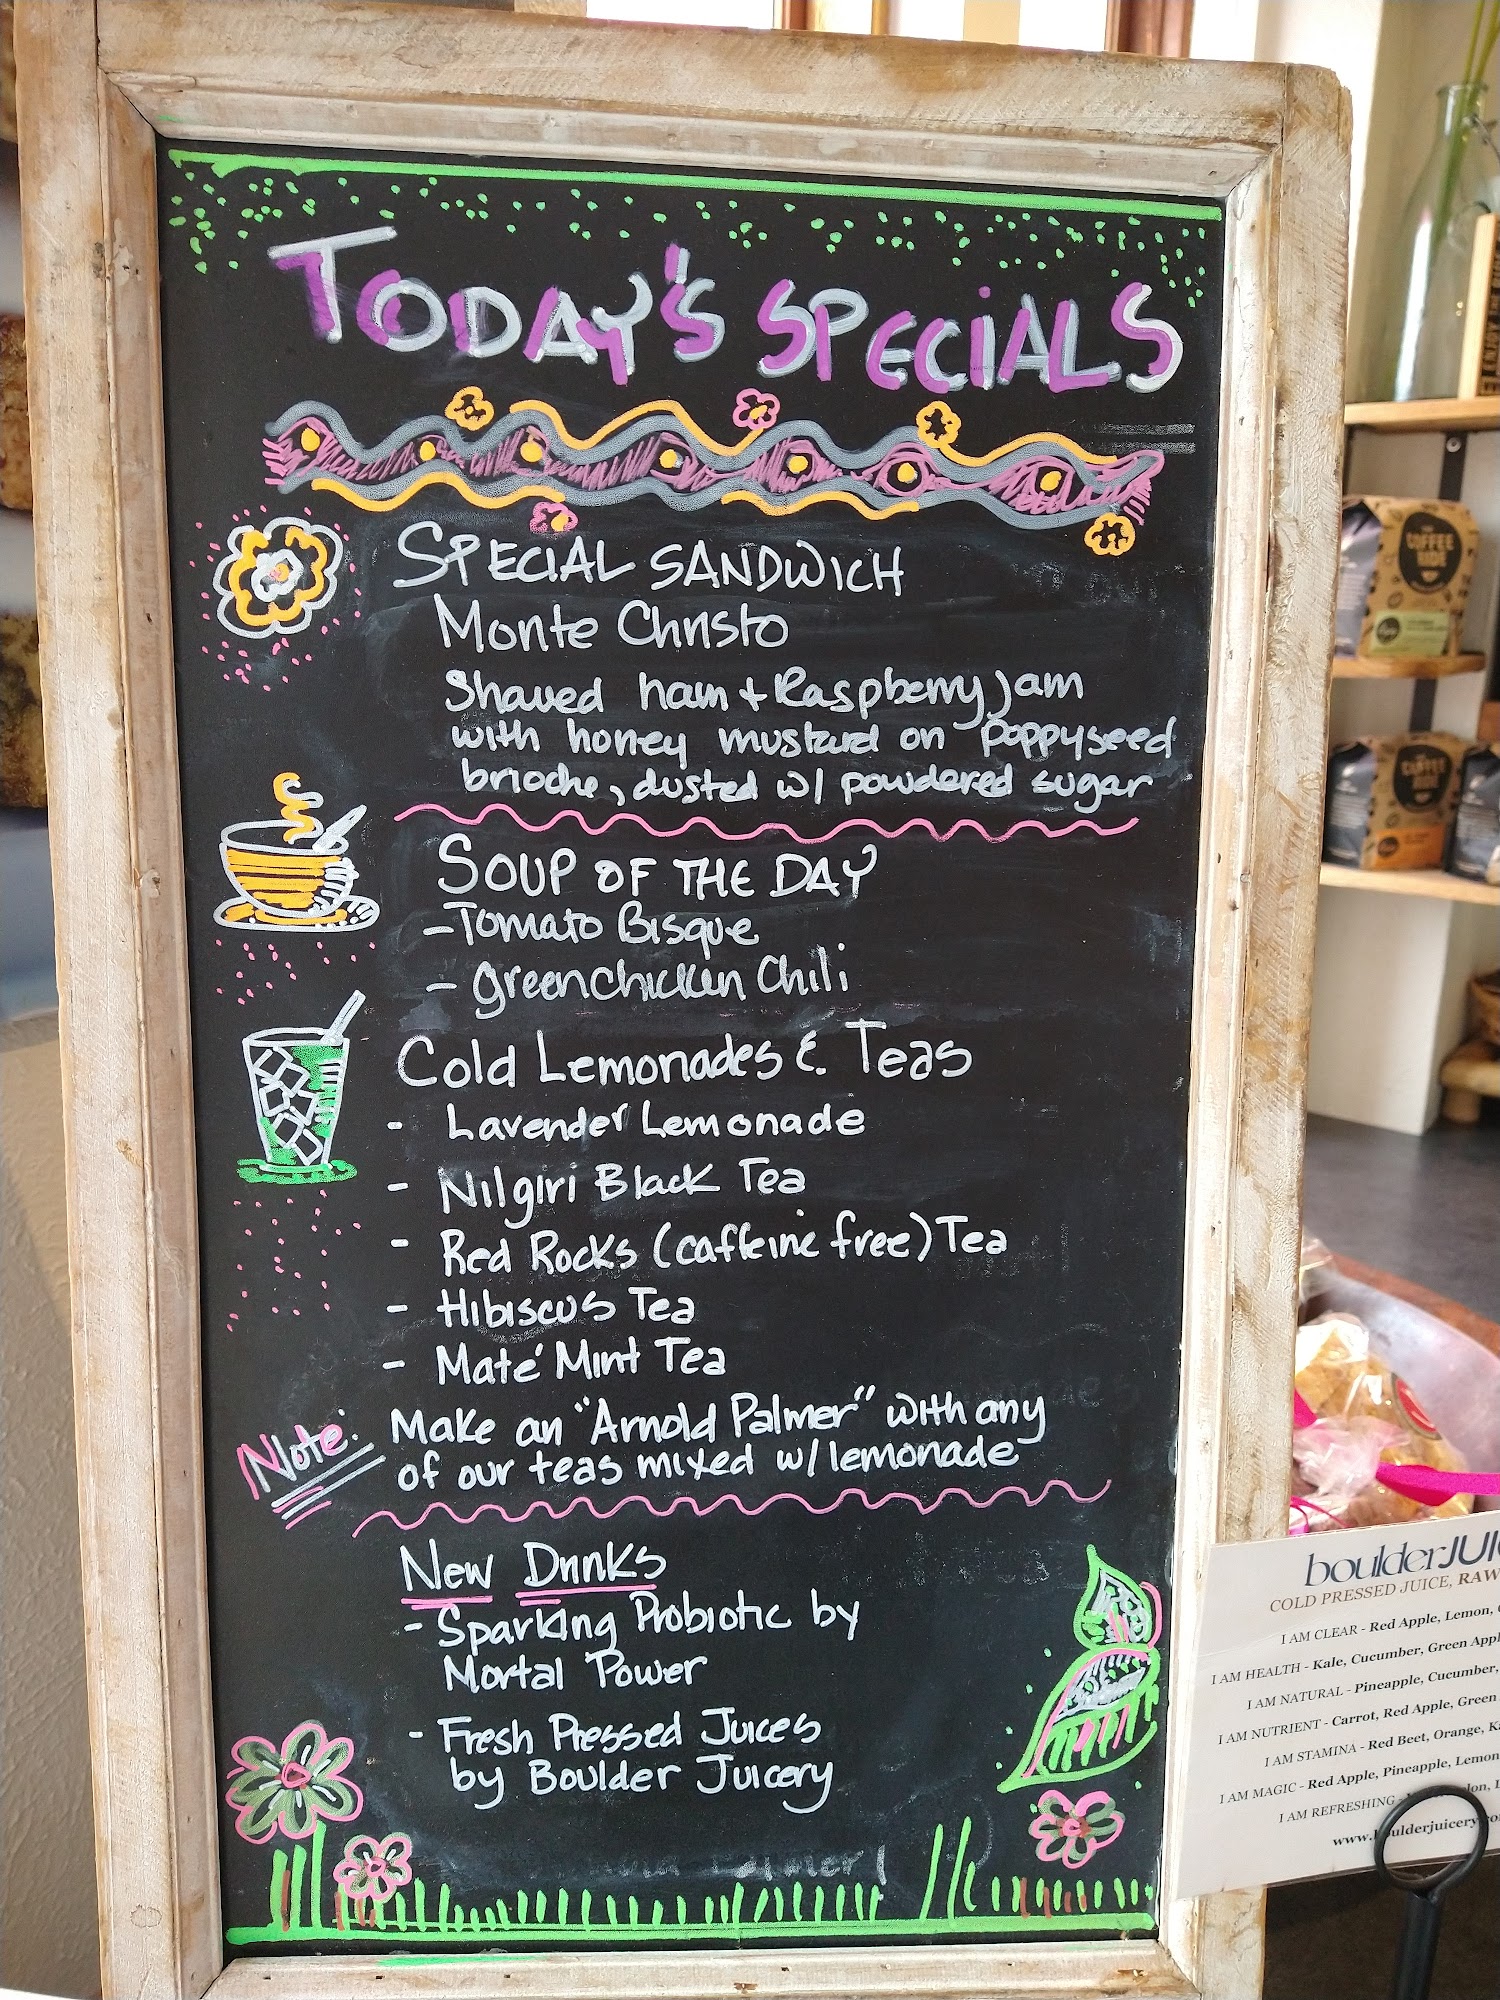 TODAY'S SPECIALS
SPECIAL SANDWICH
Monte Christo
Shaved ham + Raspberry jam
with honey mustard on poppyseed
brioche, dusted w/ powdered sugar
SOUP OF THE DAY
- Tomato Bisque
- Green chicken Chili
Cold Lemonades & Teas
- Lavender Lemonade
- Nilgiri Black Tea
- Red Rocks (caffeine free) Tea
- Hibiscus Tea
- Maté Mint Tea
Note: Make an "Arnold Palmer" with any
of our teas mixed w/ lemonade
New Drinks
- Sparkling Probiotic by
Mortal Power
- Fresh Pressed Juices
by Boulder Juicery
COFFEE
COFFEE
boulderJUIC
COLD PRESSED JUICE, RAW
I AM CLEAR - Red Apple, Lemon,
I AM HEALTH - Kale, Cucumber, Green Appl
I AM NATURAL - Pineapple, Cucumber,
I AM NUTRIENT - Carrot, Red Apple, Green
I AM STAMINA - Red Beet, Orange, Ka
I AM MAGIC - Red Apple, Pineapple, Lemon
I AM REFRESHING -
www.boulderjuicery.co